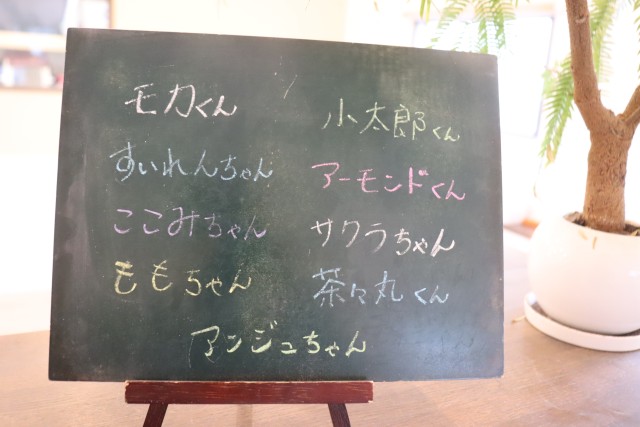 モカくん
すいれんちゃん
ここみちゃん
ももちゃん
小太郎くん
アーモンドくん
サクラちゃん
茶々丸くん
アンジュちゃん